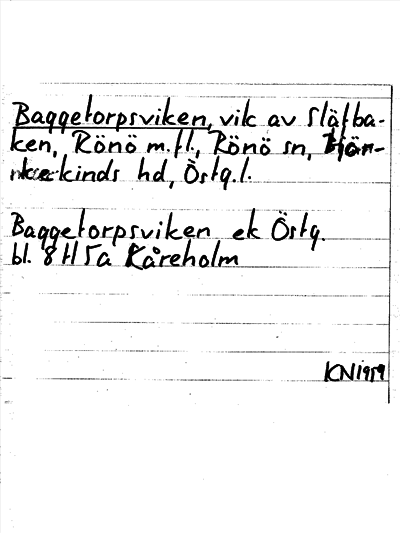 Baggetorpsviken, vik av Slätba-
ken, Rönö m.fl., Rönö sn, Björ-
kekinds hd, Östg.l.
Baggetorpsviken ek Östg.
bl. 8H5a Kåreholm
KN1959